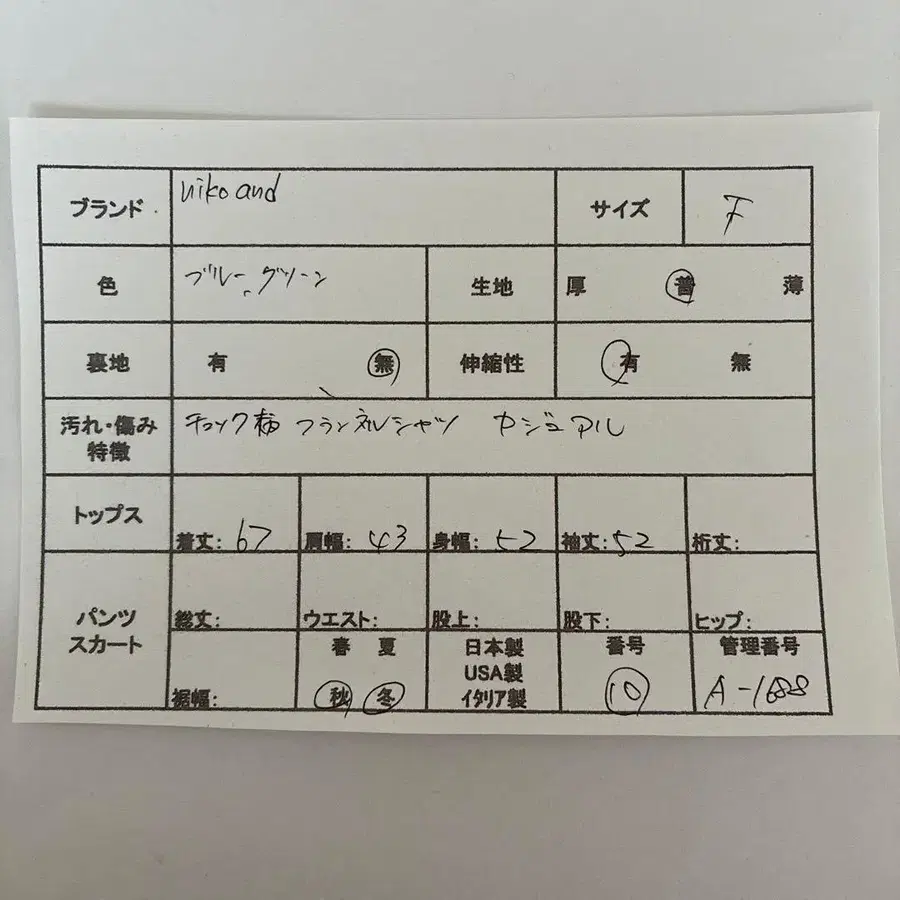 ブランド niko and サイズ F
色 ブルー、グリーン 生地 厚 普 薄
裏地 有 無 伸縮性 有 無
汚れ・傷み 特徴 チェック柄 フランネルシャツ カジュアル
トップス 着丈: 67 肩幅: 43 身幅: 52 袖丈: 52 裄丈:
パンツ スカート 総丈: ウエスト: 股上: 股下: ヒップ:
裾幅: 春 夏 秋 冬 日本製 USA製 イタリア製 番号 10 管理番号 A-1688